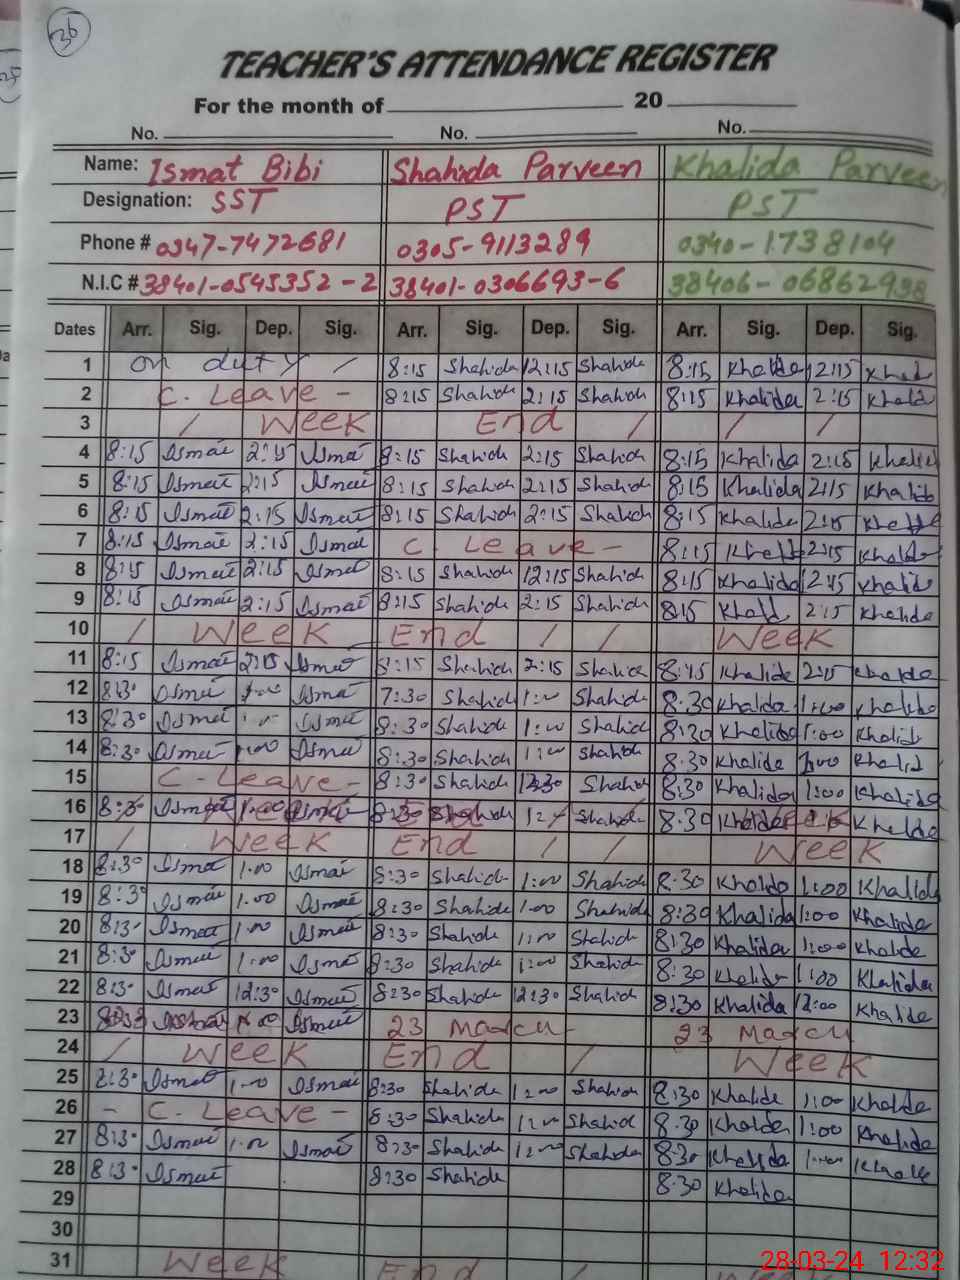 36
TEACHER'S ATTENDANCE REGISTER
For the month of 20
No. No. No.
Name: Ismat Bibi Shahida Parveen Khalida Parveen
Designation: SST PST PST
Phone # 0347-7472681 0305-9113289 0340-1738104
N.I.C # 38401-0545352-2 38401-0306693-6 38406-06862938
Dates Arr. Sig. Dep. Sig. Arr. Sig. Dep. Sig. Arr. Sig. Dep. Sig.
1 on duty / 8:15 Shahida 12:15 Shahida 8:15 Khalida 12:15
2 C. Leave - 8:15 Shahida 2:15 Shahida 8:15 Khalida 2:15 Khalida
3 / Week End / / /
4 8:15 Ismat 2:15 Ismat 8:15 Shahida 2:15 Shahida 8:15 Khalida 2:15 Khalida
5 8:15 Ismat 2:15 Ismat 8:15 Shahida 2:15 Shahida 8:15 Khalida 2:15 Khalida
6 8:15 Ismat 2:15 Ismat 8:15 Shahida 2:15 Shahida 8:15 Khalida 2:15
7 8:15 Ismat 2:15 Ismat C. Leave - 8:15 2:15 Khalida
8 8:15 Ismat 2:15 Ismat 8:15 Shahida 12:15 Shahida 8:15 Khalida Khalida
9 8:15 Ismat 2:15 Ismat 8:15 Shahida 2:15 Shahida 8:15 2:15 Khalida
10 / Week End / / Week
11 8:15 Ismat 2:15 Ismat 8:15 Shahida 2:15 Shahida 8:15 Khalida 2:15 Khalida
12 8:30 Ismat 1:00 Ismat 7:30 Shahida 1:00 Shahida 8:30 Khalida 1:00 Khalida
13 8:30 Ismat 1:00 Ismat 8:30 Shahida 1:00 Shahida 8:30 Khalida 1:00 Khalida
14 8:30 Ismat 1:00 Ismat 8:30 Shahida 1:00 Shahida 8:30 Khalida 1:00 Khalida
15 C. Leave - 8:30 Shahida 12:30 Shahida 8:30 Khalida 1:00 Khalida
16 8:30 Ismat 1:00 Ismat 8:30 Shahida Shahida 8:30 Khalida Khalida
17 / Week End / / Week
18 8:30 Ismat 1:00 Ismat 8:30 Shahida 1:00 Shahida 8:30 Khalida 1:00 Khalida
19 8:30 Ismat 1:00 Ismat 8:30 Shahida 1:00 Shahida 8:30 Khalida 1:00 Khalida
20 8:30 Ismat 1:00 Ismat 8:30 Shahida 1:00 Shahida 8:30 Khalida 1:00 Khalida
21 8:30 Ismat 1:00 Ismat 8:30 Shahida 1:00 Shahida 8:30 Khalida 1:00 Khalida
22 8:30 Ismat 12:30 Ismat 8:30 Shahida 12:30 Shahida 8:30 Khalida 12:00 Khalida
23 Ismat 23 March 23 March
24 / Week End / Week
25 8:30 Ismat 1:00 Ismat 8:30 Shahida 1:00 Shahida 8:30 Khalida 1:00 Khalida
26 - C. Leave - 8:30 Shahida 1:00 Shahida 8:30 Khalida 1:00 Khalida
27 8:30 Ismat 1:00 Ismat 8:30 Shahida 1:00 Shahida 8:30 Khalida 1:00
28 8:30 Ismat 8:30 Shahida 8:30 Khalida
29
30
31 Week End /
28-03-24 12:32